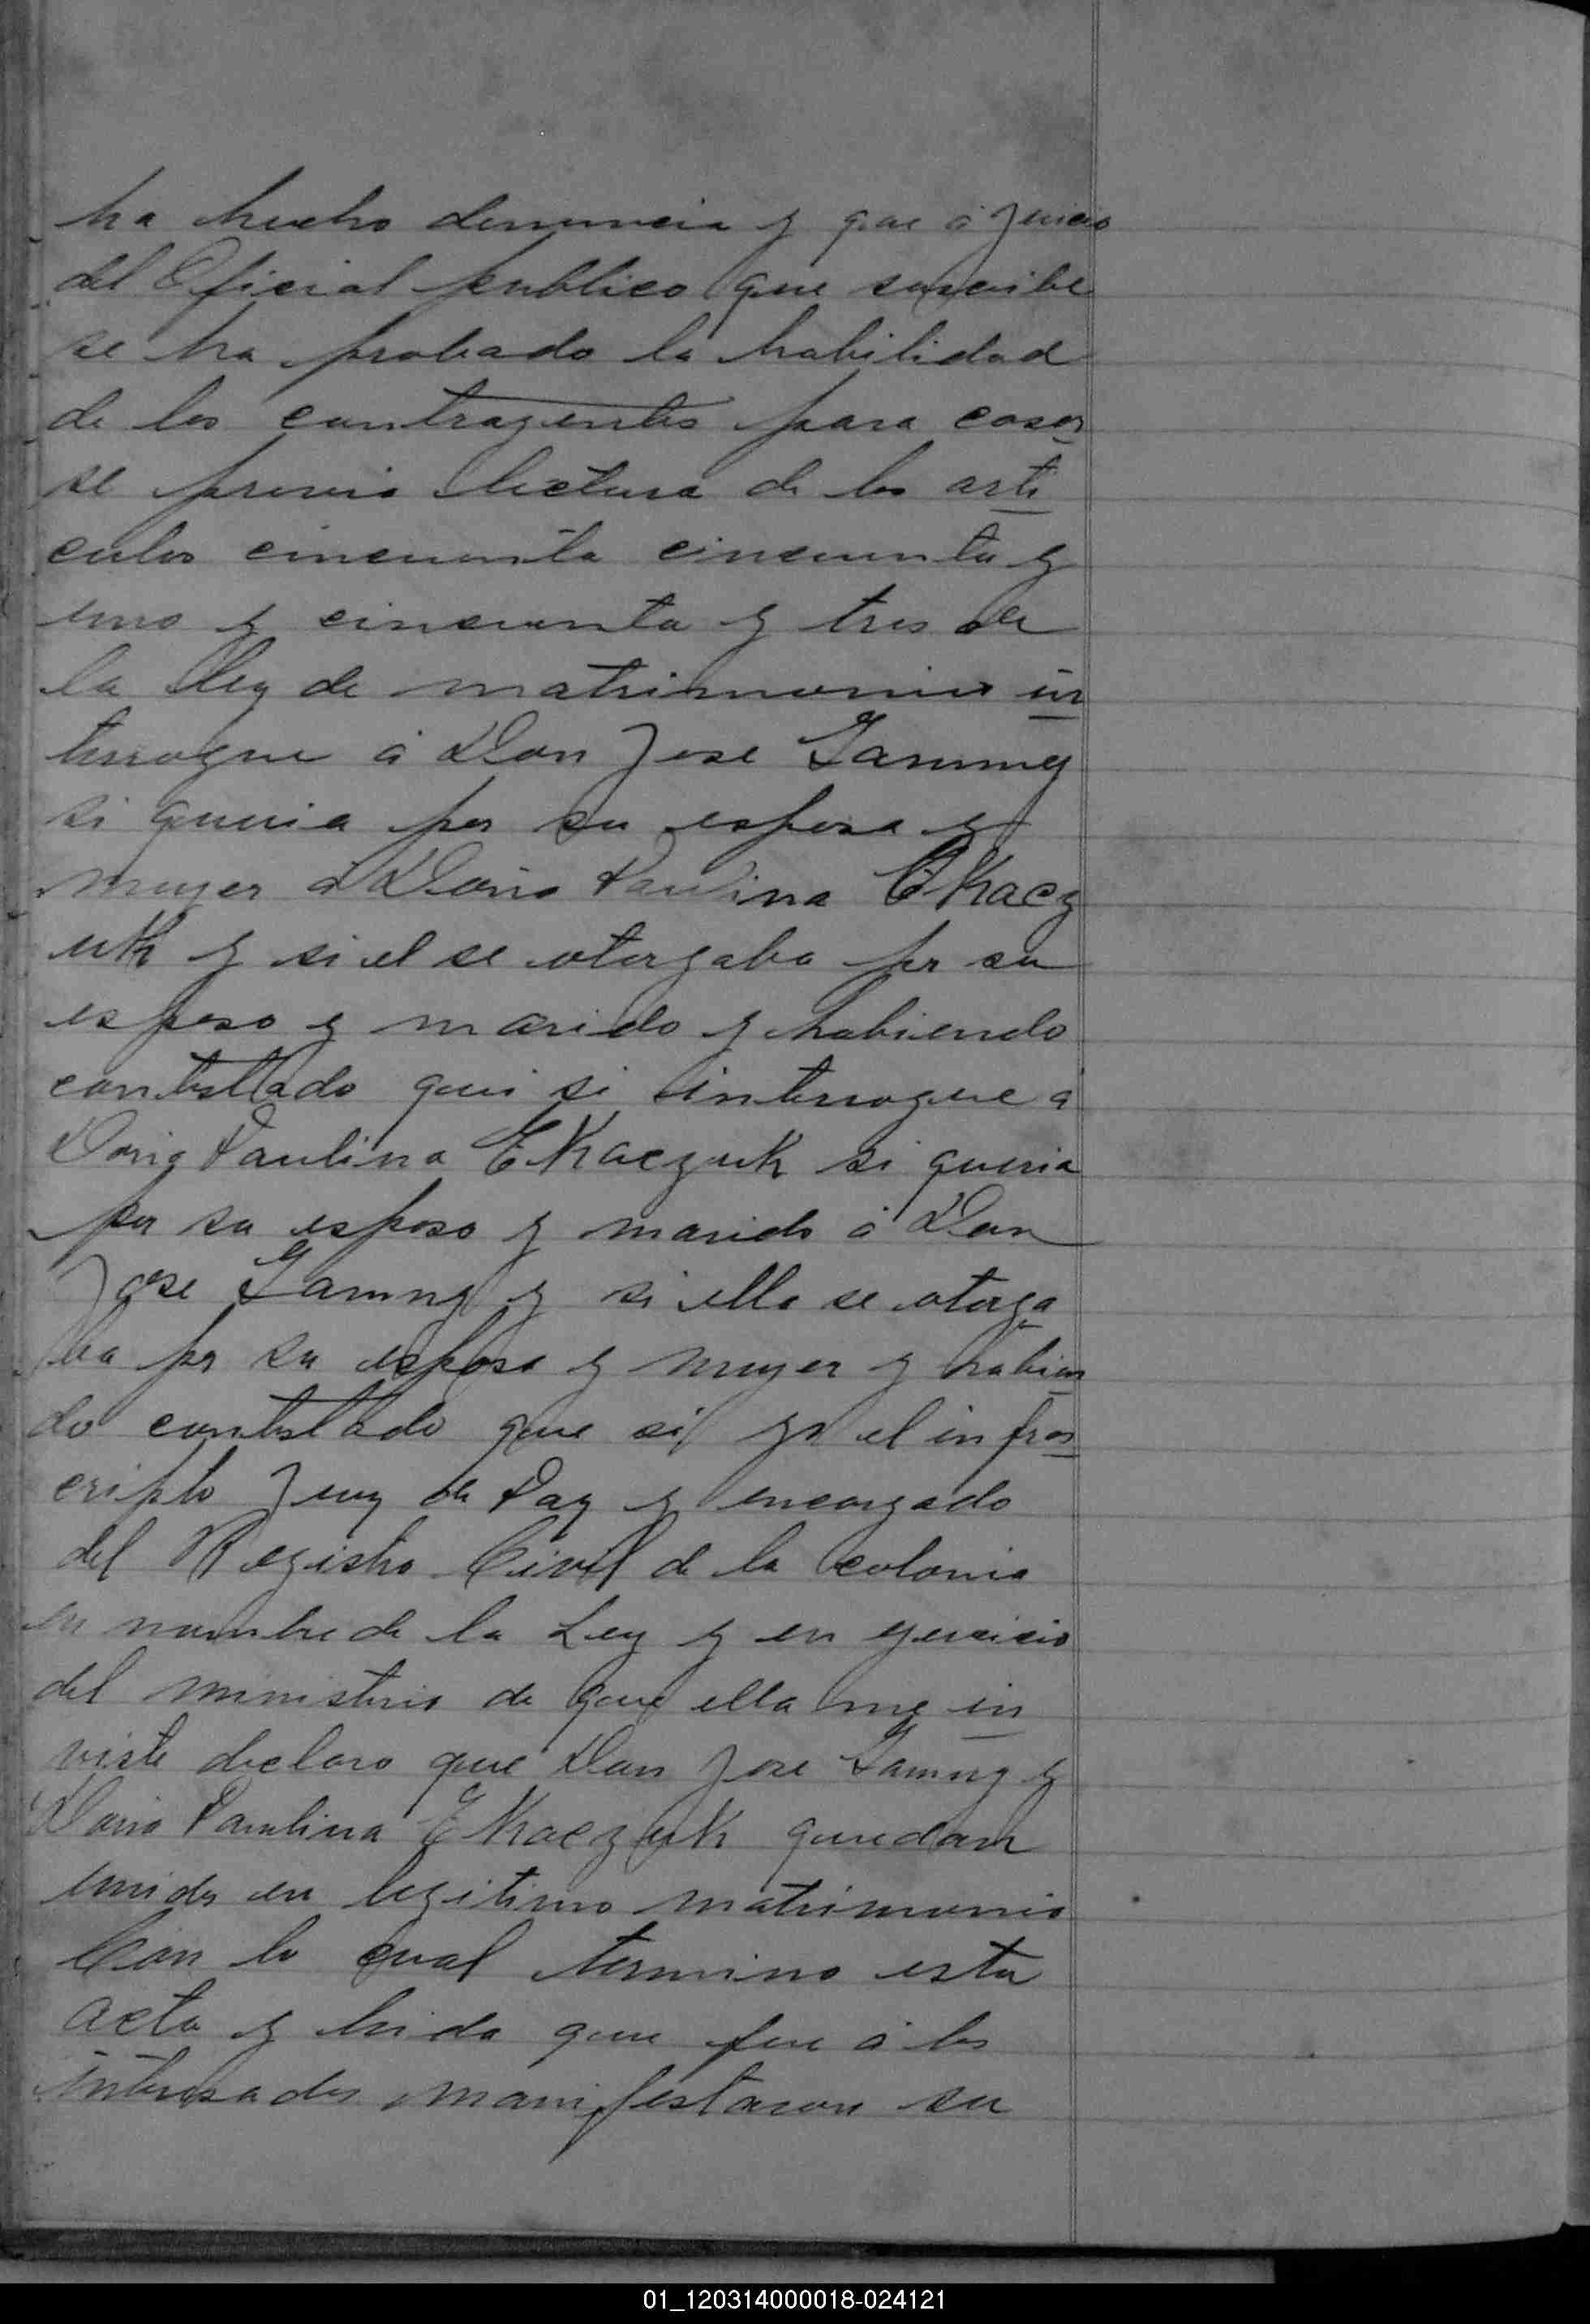 ha hecho denuncia y que á Juicio
del Oficial publico que suscribe
se ha probado la habilidad
de los contrayentes para casar
se previa lectura de los arti
culos cincuenta cincuenta y
uno y cincuenta y tres de
la ley de matrimonio in
terrogue á Don Jose
si queria por su esposa y
mujer á Doña Paulina Ekacz
uk y si el se otorgaba por su
esposo y marido y habiendo
contestado que si interrogue a
Doña Paulina Ekaczuk si queria
por su esposo y marido á Don
Jose y si ella se otorga
ba por su esposa y mujer y habien
do contestado que si yo el infras
cripto Juez de Paz y encargado
del Registro Civil de la colonia
en nombre de la Ley y en ejercicio
del ministerio de que ella me in
viste declaro que Don Jose y
Doña Paulina Ekaczuk quedan
unidos en legitimo matrimonio
Con lo cual termino esta
acta y leida que fue á los
interesados manifestaron su
01_120314000018-024121